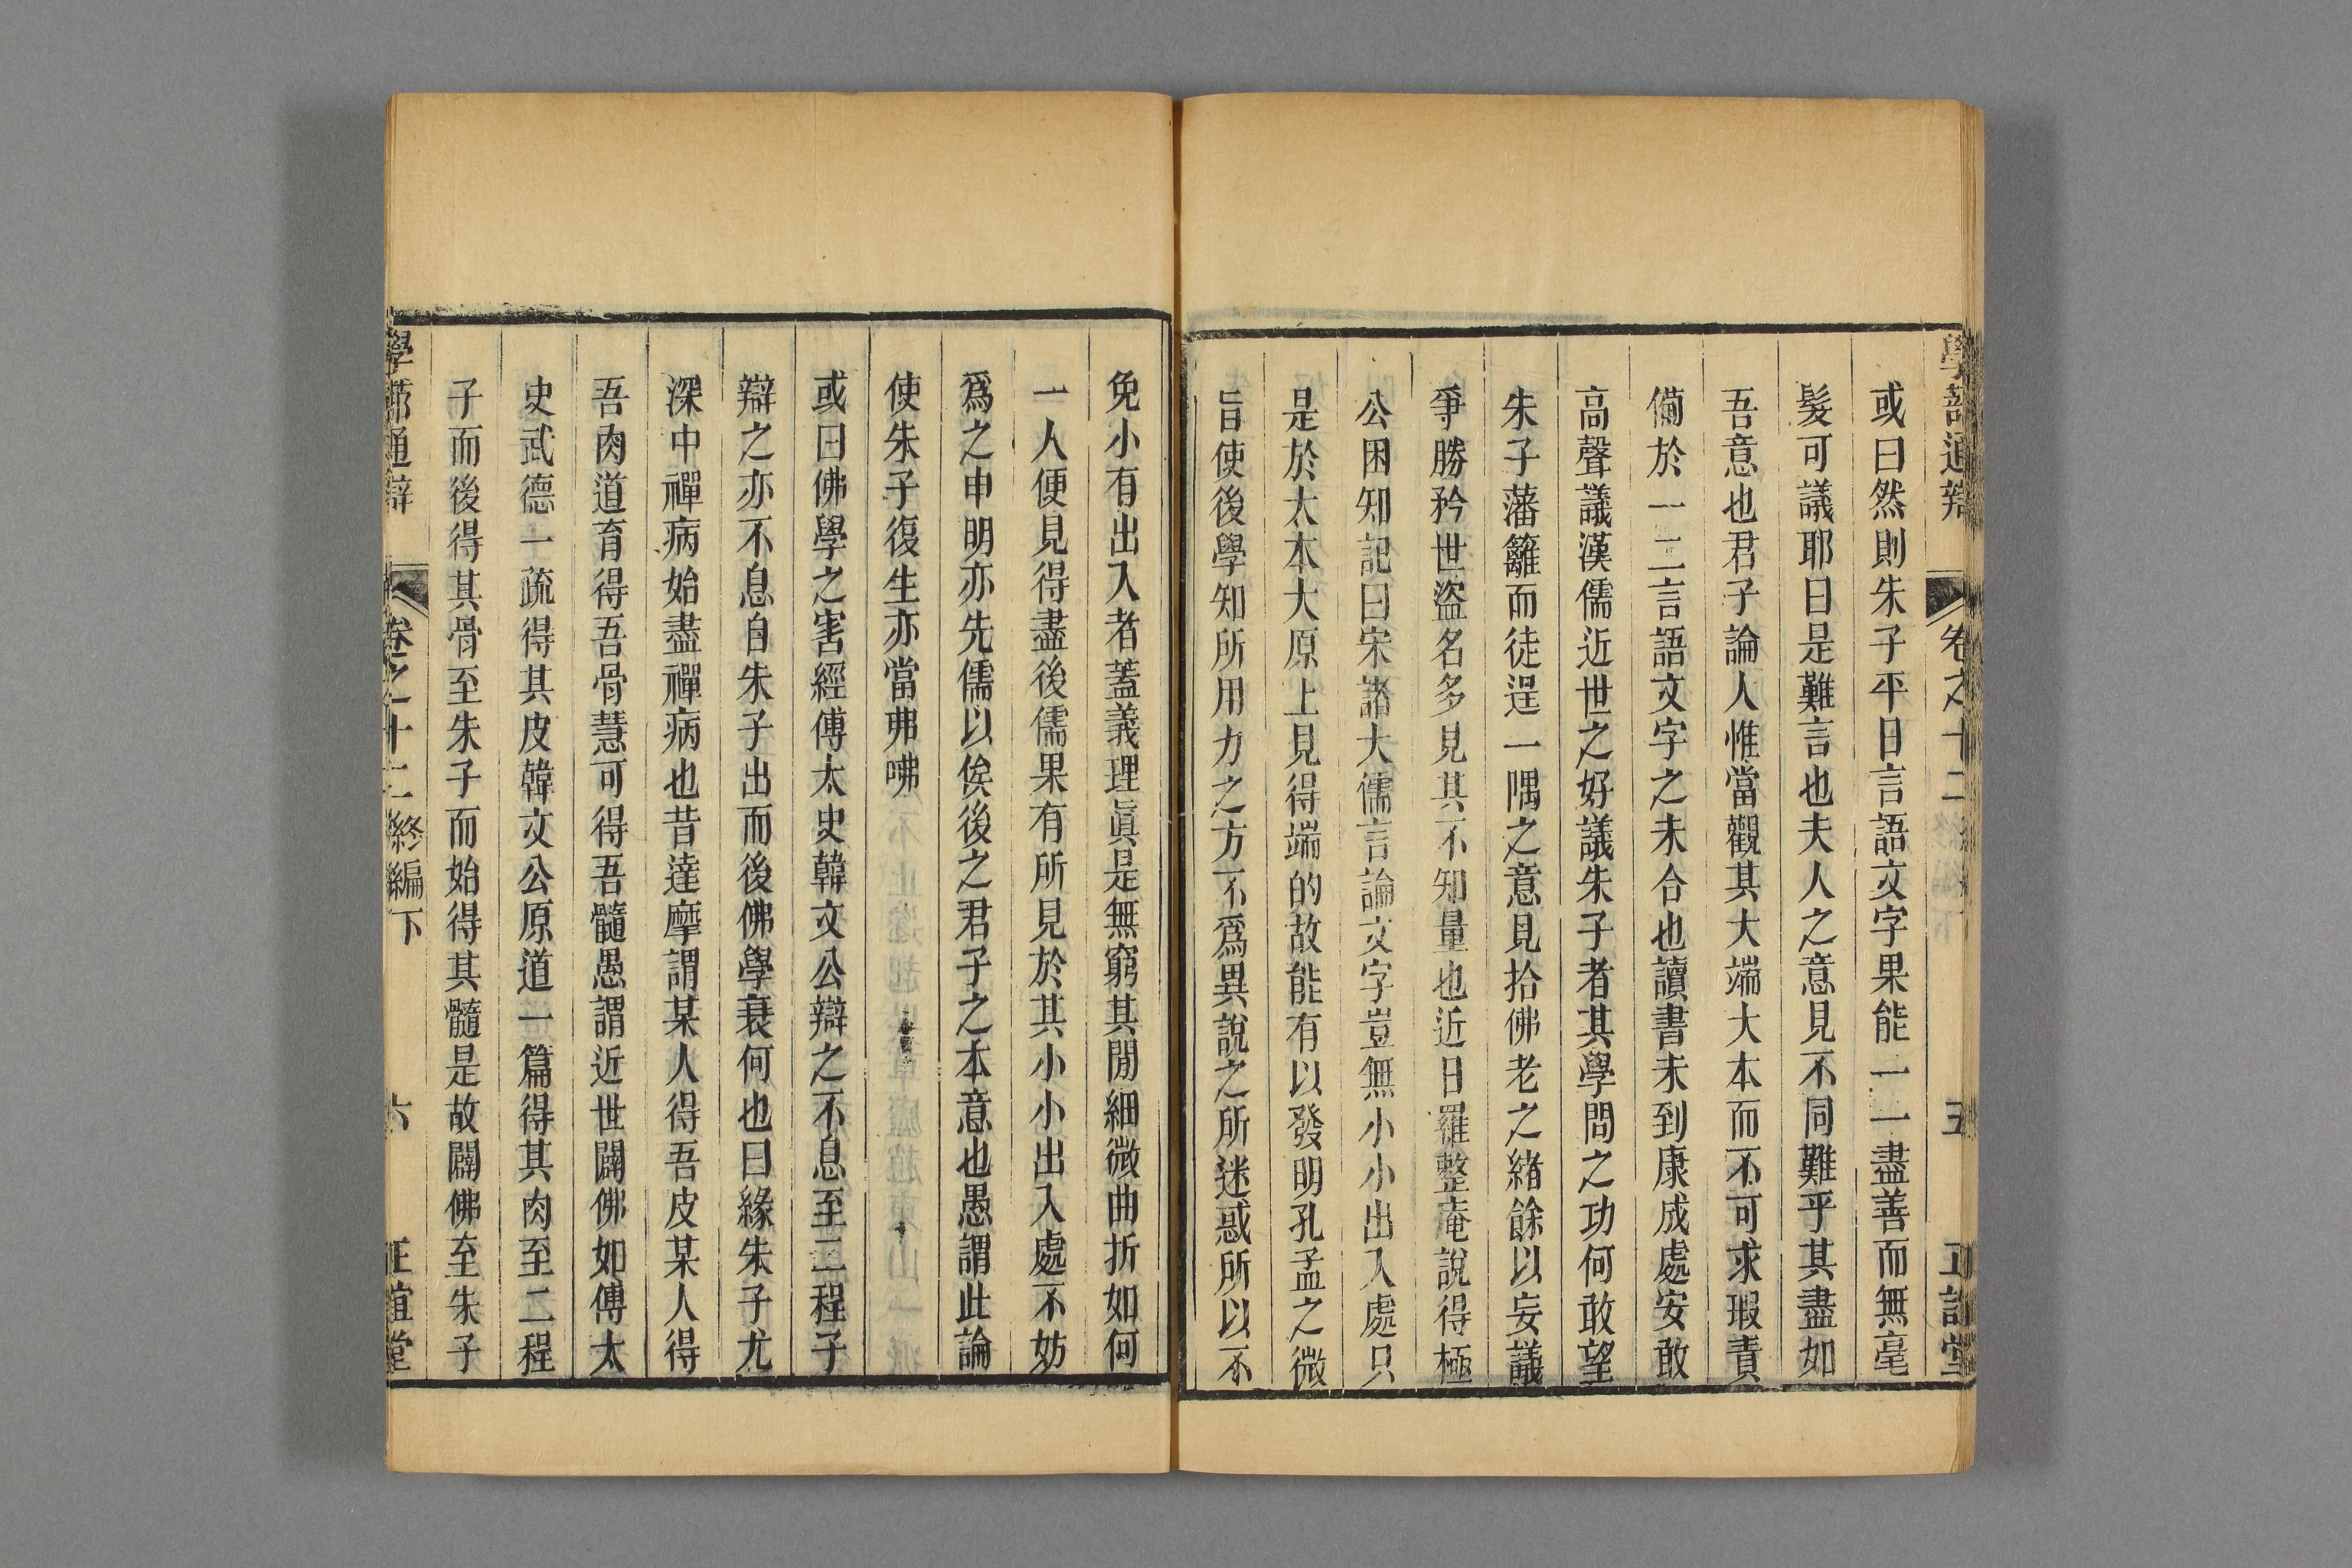 學蔀通辯 卷之十二 終編下 五 正誼堂
或曰然則朱子平日言語文字果能一一盡善而無毫
髮可議耶曰是難言也夫人之意見不同難乎其盡如
吾意也君子論人惟當觀其大端大本而不可求瑕責
備於一二言語文字之未合也讀書未到康成處安敢
高聲議漢儒近世之好議朱子者其學問之功何敢望
朱子藩籬而徒逞一隅之意見拾佛老之緒餘以妄議
爭勝矜世盜名多見其不知量也近日羅整庵說得極
公困知記曰宋諸大儒言論文字豈無小小出入處只
是於大本大原上見得端的故能有以發明孔孟之微
旨使後學知所用力之方不爲異說之所迷惑所以不
免小有出入者蓋義理眞是無窮其閒細微曲折如何
一人便見得盡後儒果有所見於其小小出入處不妨
爲之申明亦先儒以俟後之君子之本意也愚謂此論
使朱子復生亦當弗咈
或曰佛學之害經傅太史韓文公辯之不息至二程子
辯之亦不息自朱子出而後佛學衰何也曰緣朱子尤
深中禪病始盡禪病也昔達摩謂某人得吾皮某人得
吾肉道育得吾骨慧可得吾髓愚謂近世闢佛如傅太
史武德一疏得其皮韓文公原道一篇得其肉至二程
子而後得其骨至朱子而始得其髓是故闢佛至朱子
學蔀通辯 卷之十二 終編下 六 正誼堂